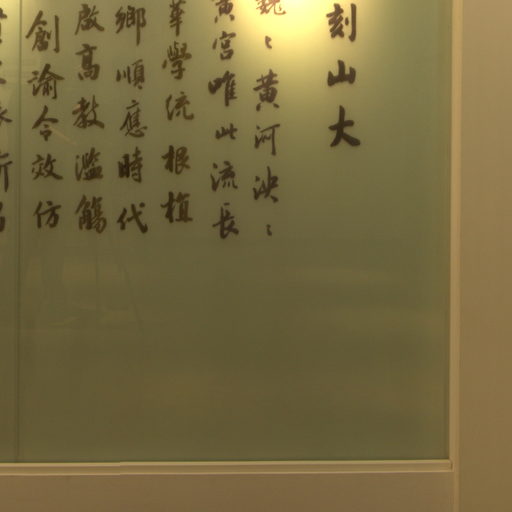 刻山大
巍〻黄河泱〻
黄宮唯此流長
華學流根植
鄉順應時代
啟高教濫觴
創諭令效仿